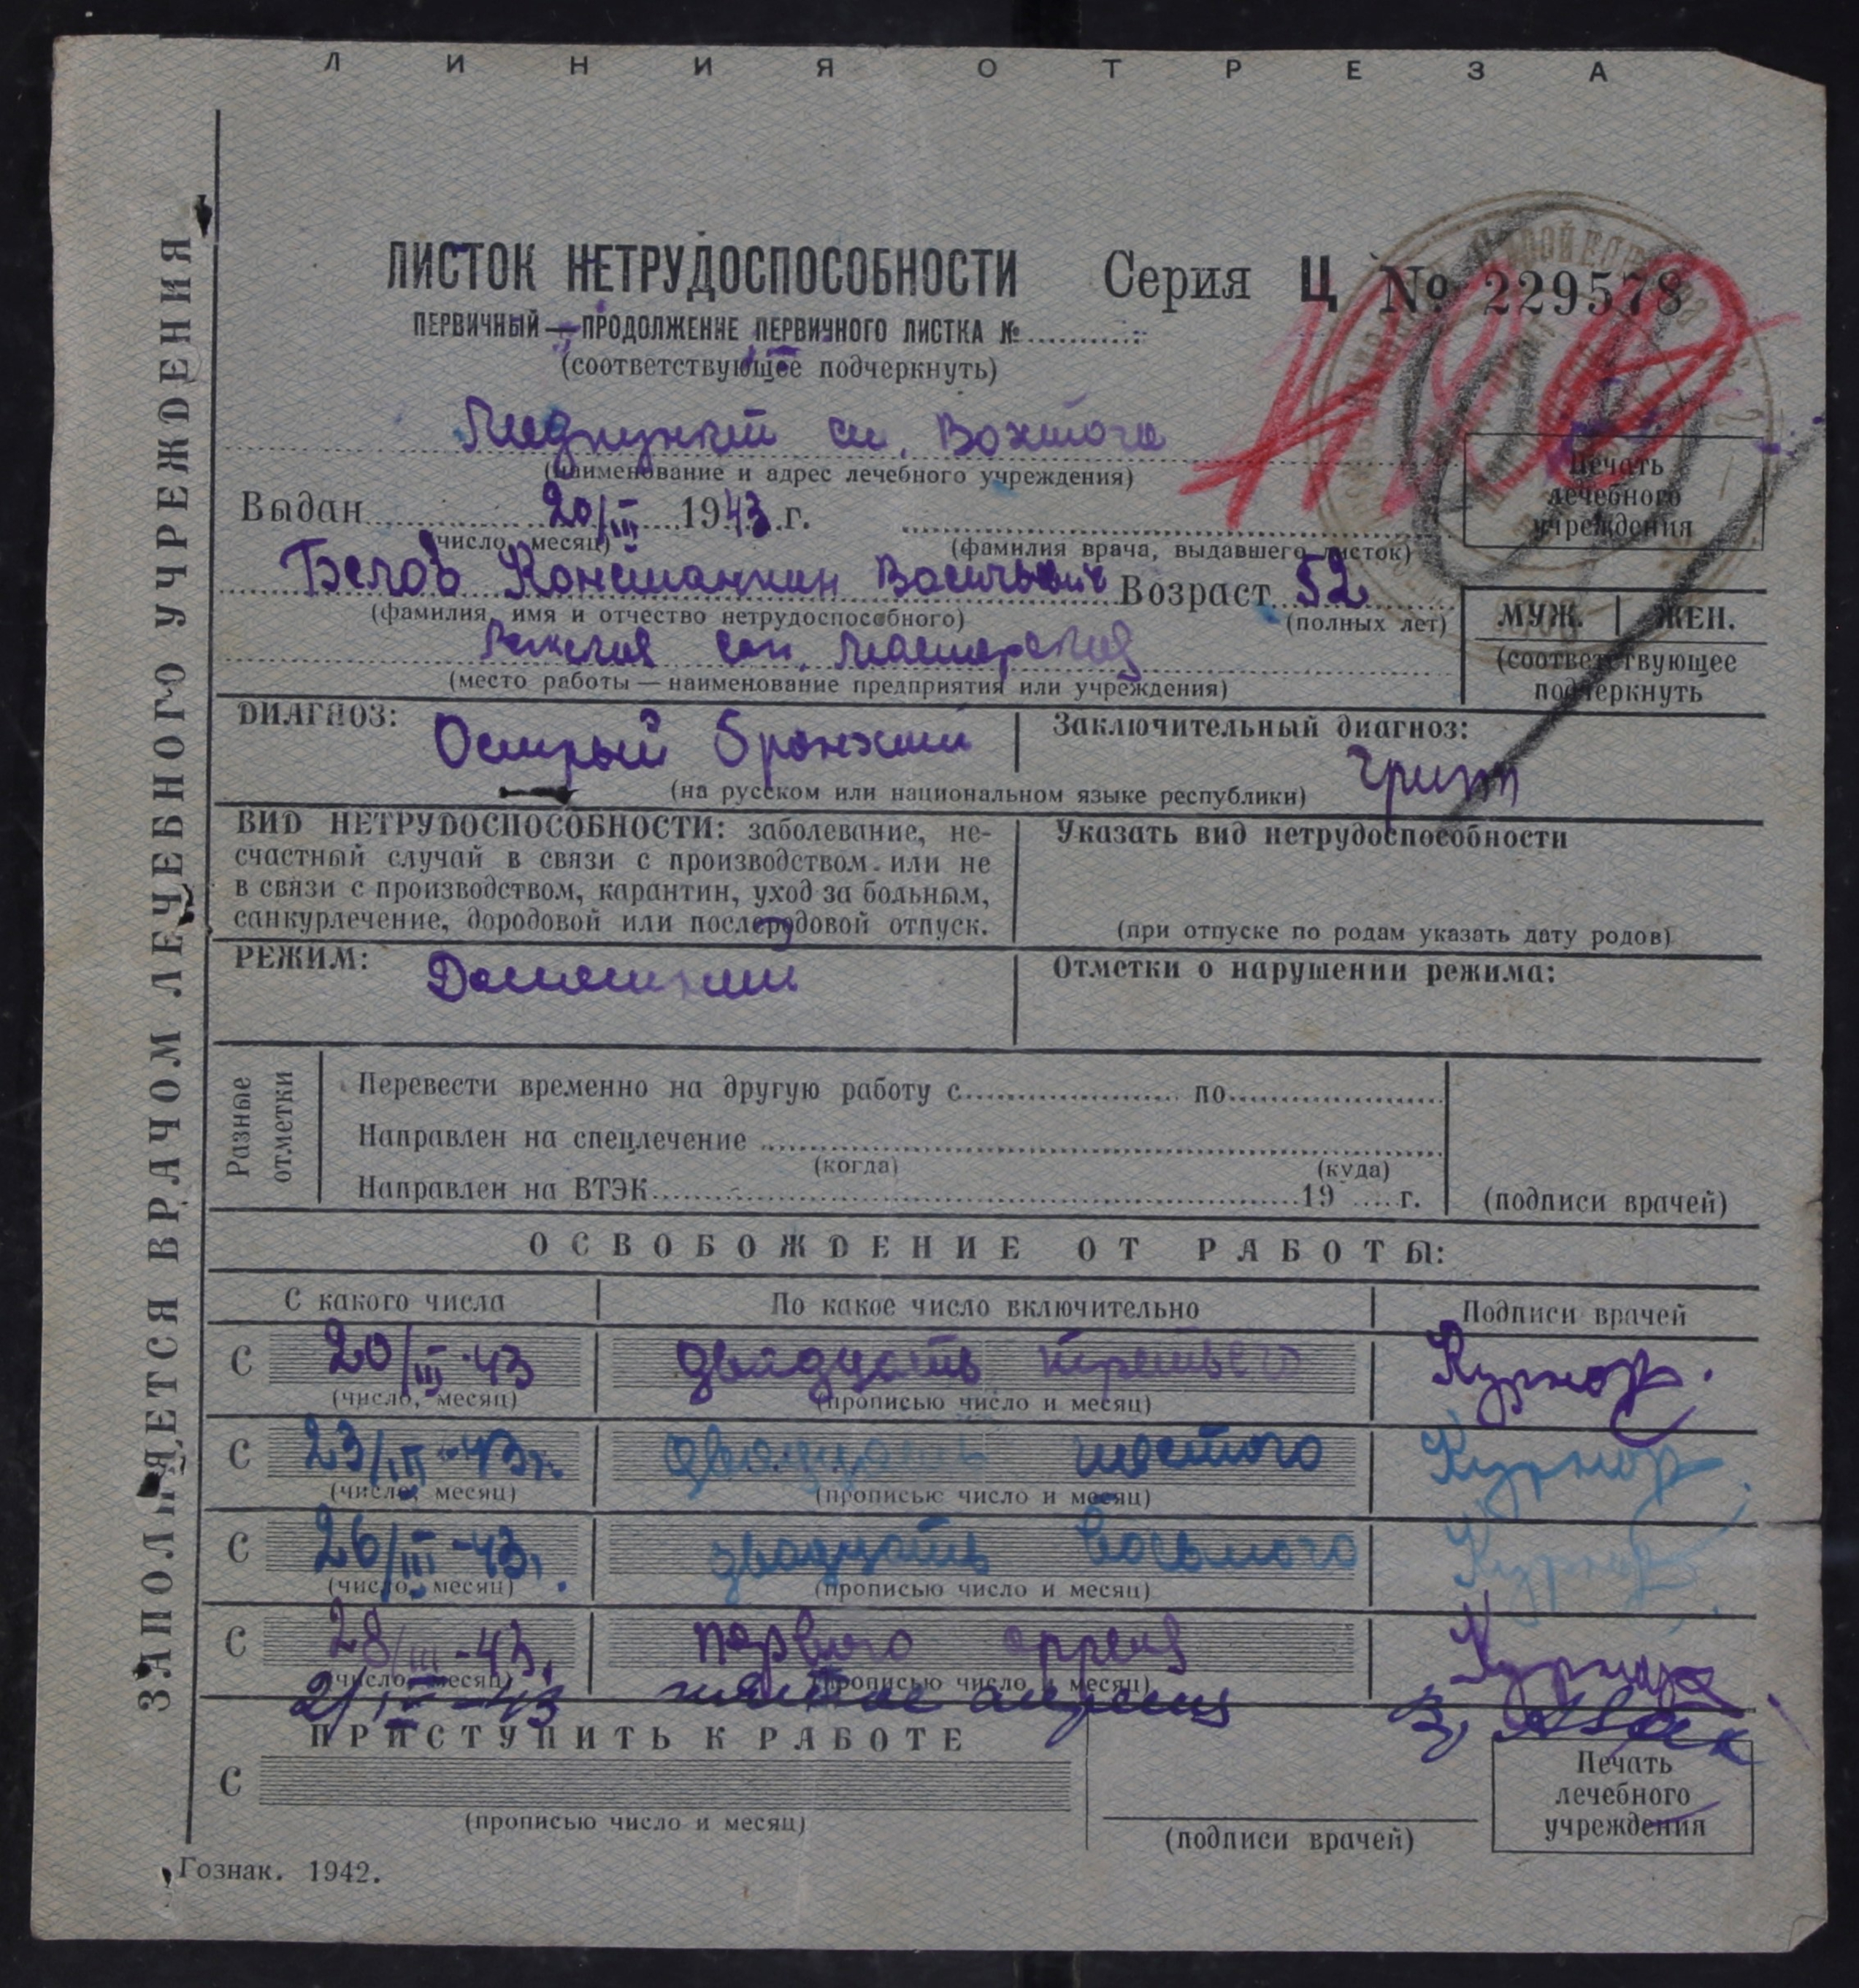 ЛИНИЯ ОТРЕЗА
ЗАПОЛНЯЕТСЯ ВРАЧОМ ЛЕЧЕБНОГО УЧРЕЖДЕНИЯ
ЛИСТОК НЕТРУДОСПОСОБНОСТИ Серия Ц № 229578
ПЕРВИЧНЫЙ — ПРОДОЛЖЕНИЕ ПЕРВИЧНОГО ЛИСТКА №
(соответствующее подчеркнуть)
Медпункт ст. Вохтога
(наименование и адрес лечебного учреждения)
Печать
лечебного
учреждения
Выдан 20/III 1943 г.
(число, месяц) (фамилия врача, выдавшего листок)
Белов Константин Васильевич Возраст 52
(фамилия, имя и отчество нетрудоспособного) (полных лет)
МУЖ. | ЖЕН.
(соответствующее
подчеркнуть
(место работы — наименование предприятия или учреждения)
ДИАГНОЗ: Острый бронхит Заключительный диагноз:
грипп
(на русском или национальном языке республики)
ВИД НЕТРУДОСПОСОБНОСТИ: заболевание, не-
счастный случай в связи с производством или не
в связи с производством, карантин, уход за больным,
санкурлечение, дородовой или послеродовой отпуск.
Указать вид нетрудоспособности
(при отпуске по родам указать дату родов)
РЕЖИМ: Домашний Отметки о нарушении режима:
Разные
отметки
Перевести временно на другую работу с по
Направлен на спецлечение
(когда) (куда)
Направлен на ВТЭК 19 г. (подписи врачей)
ОСВОБОЖДЕНИЕ ОТ РАБОТЫ:
С какого числа По какое число включительно Подписи врачей
С 20/III-43 двадцать третьего
(число, месяц) (прописью число и месяц)
С 23/III-43г. двадцать шестого
(число, месяц) (прописью число и месяц)
С 26/III-43г. двадцать восьмого
(число, месяц) (прописью число и месяц)
С 28/III-43г. первого апреля
(число, месяц) (прописью число и месяц)
2/IV-43 апреля
ПРИСТУПИТЬ К РАБОТЕ
С
(прописью число и месяц) (подписи врачей)
Печать
лечебного
учреждения
Гознак. 1942.